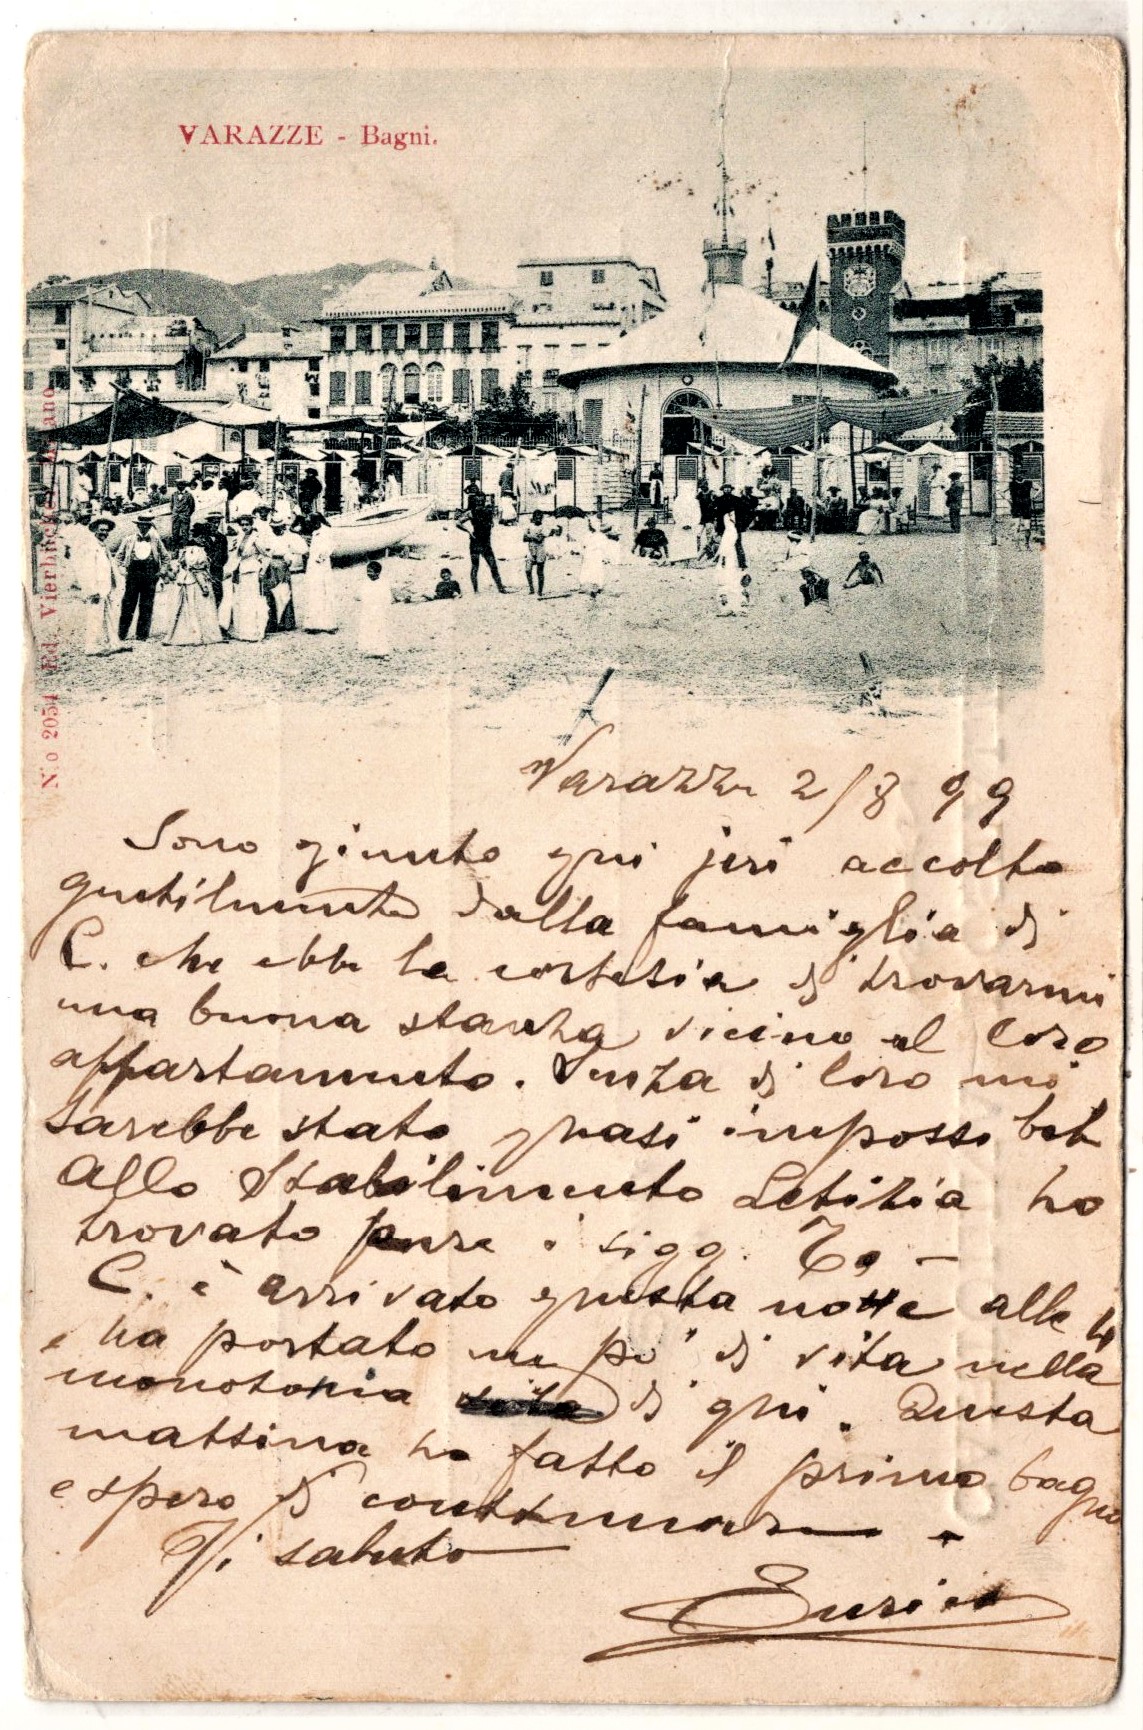 VARAZZE - Bagni.
N.o 2054 Ed. Vierbücher Milano
Varazze 2/8 99
Sono giunto qui jeri accolto
gentilmente dalla famiglia di
C. che ebbe la cortesia di trovarmi
una buona stanza vicino al loro
appartamento. Senza di loro mi
sarebbe stato quasi impossibile
Allo Stabilimento Letizia ho
trovato pure i sigg.
C. è arrivato questa notte alle 4
e ha portato un po' di vita nella
monotonia di qui. Questa
mattina ho fatto il primo bagno
e spero di continuare.
Vi saluto